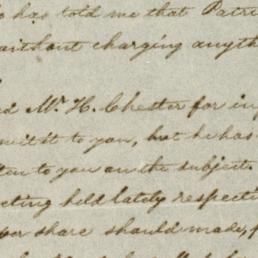 has told me that Patri
without charging anyth
ed Mr. H. Chester for in
mit it to you, but he has
ten to you on the subject.
eting held lately respecti
per share should made,